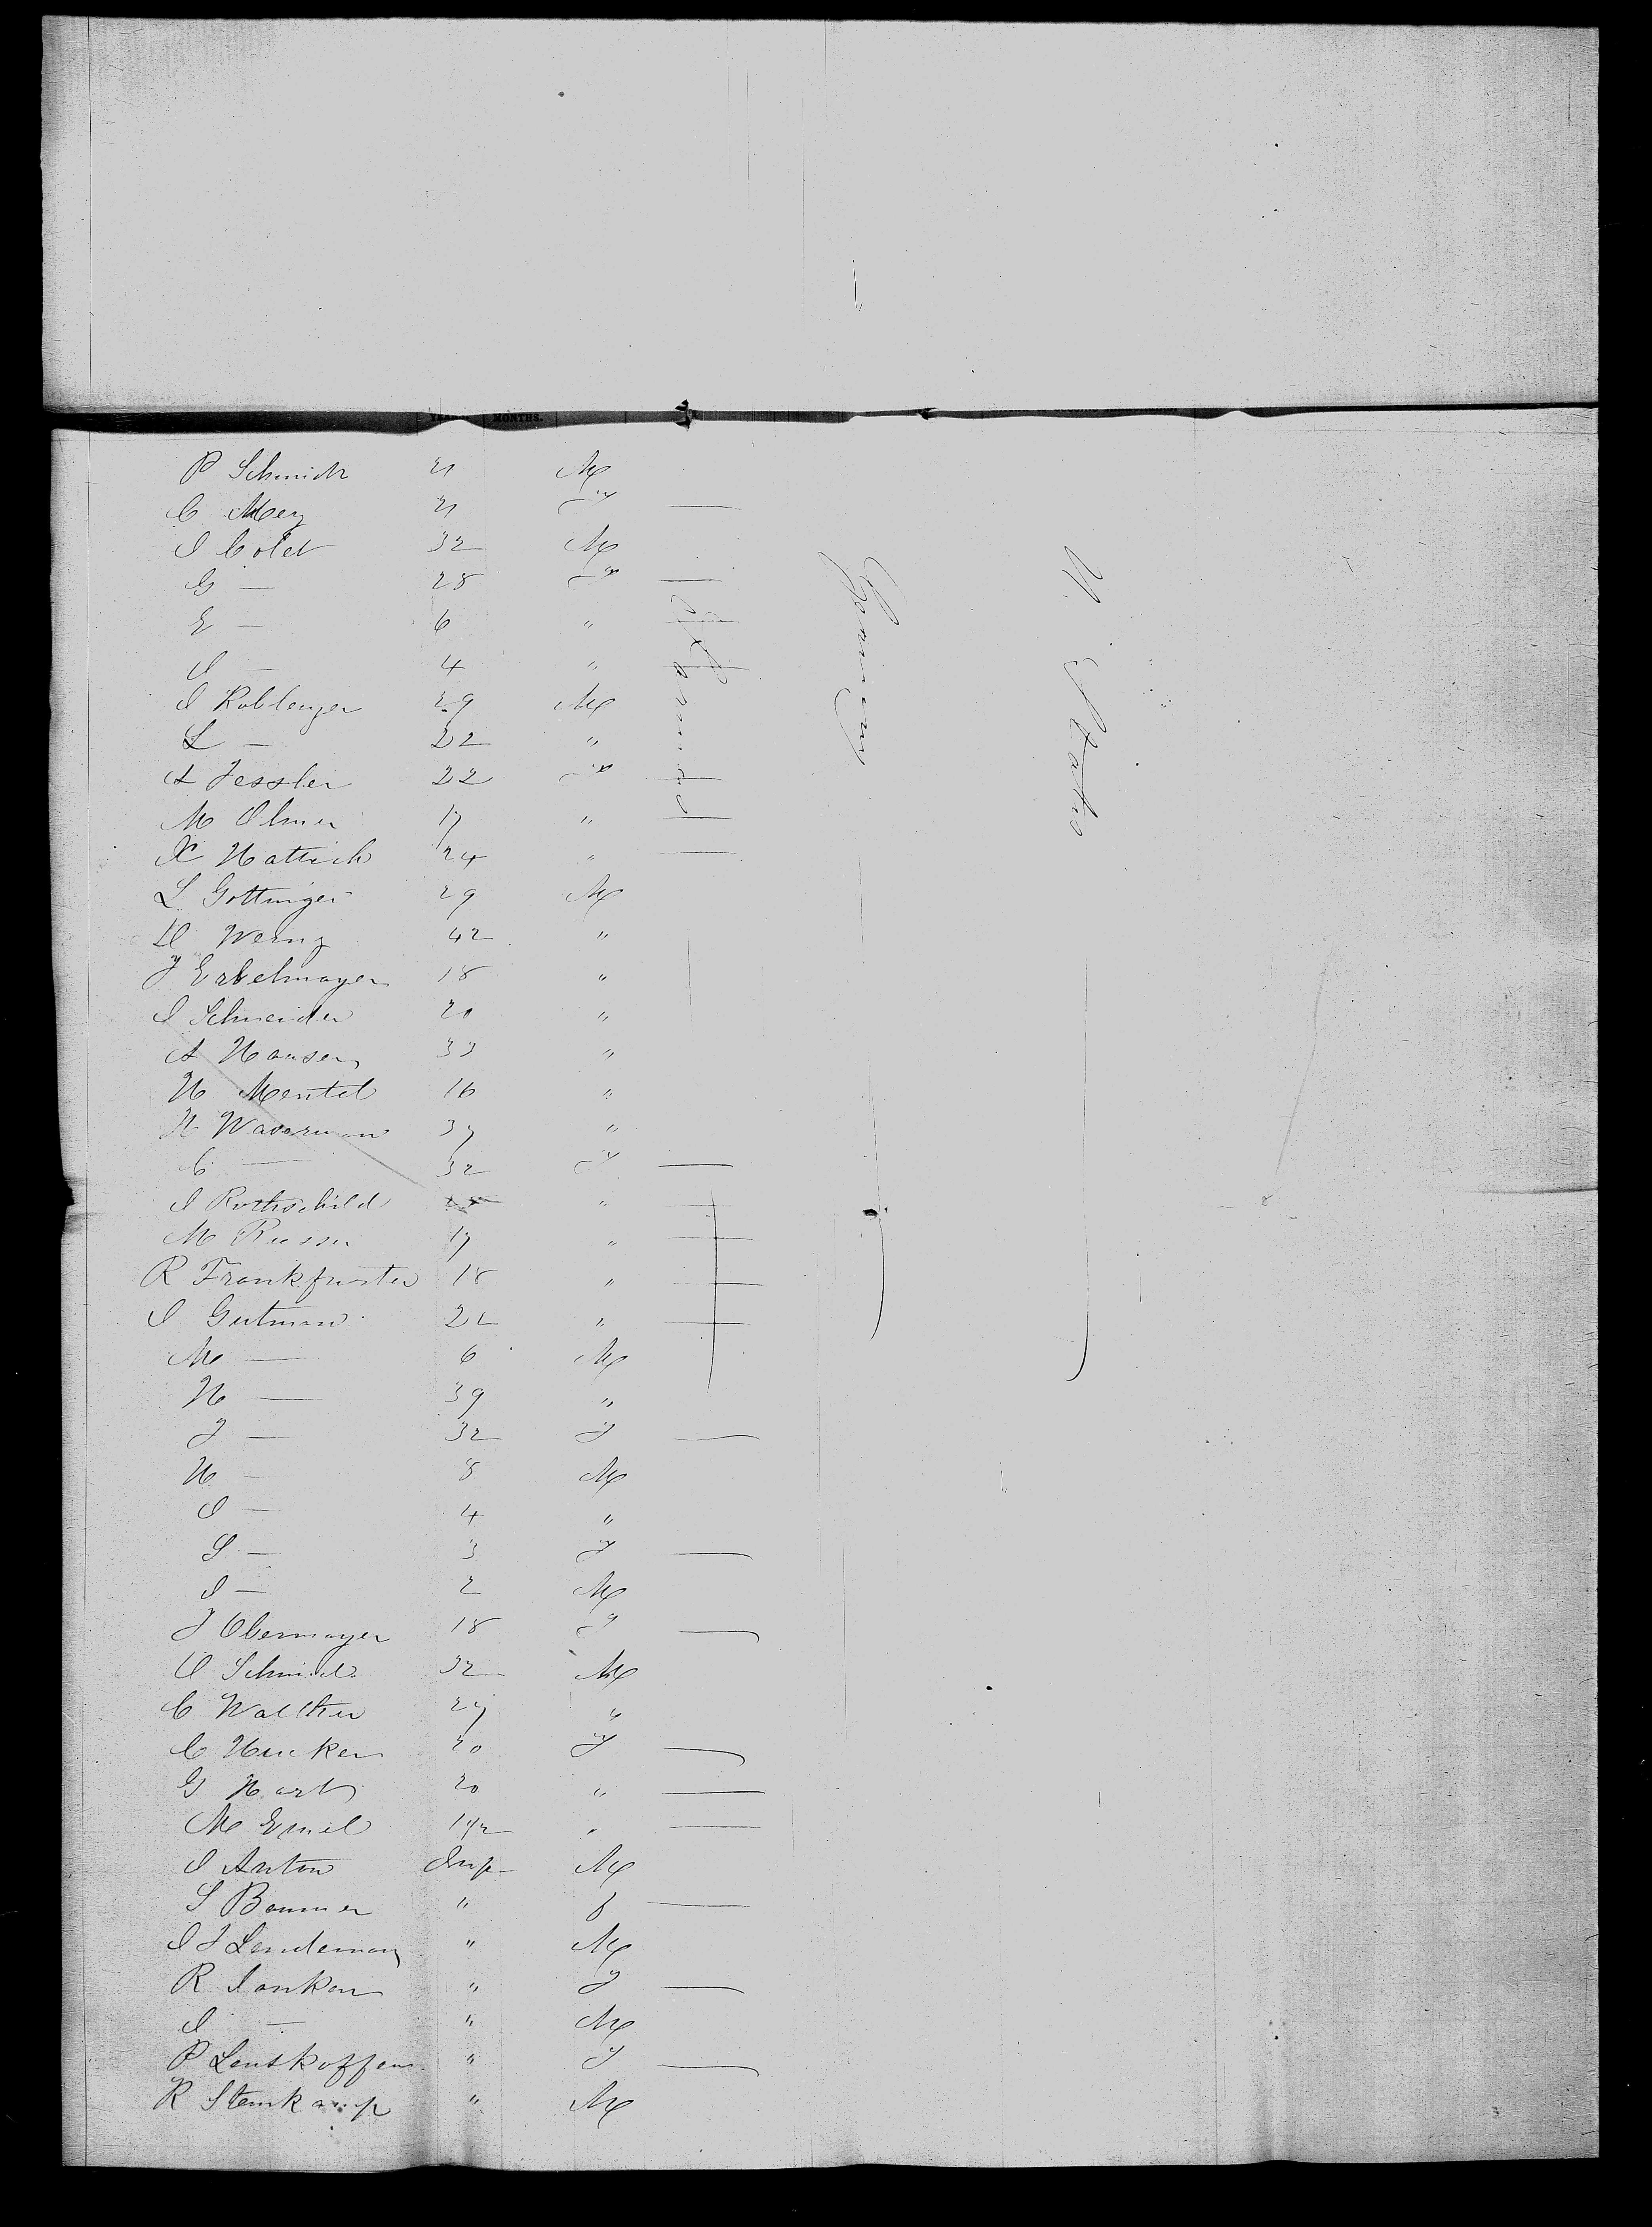 YEARS. MONTHS.
P Schmidt 21 M
C Mey 21 F —
I Colet 32 M
G — 28 F —
E — 6 " —
I — 4 " —
I Koblenzer 29 M
L — 22 "
A Fessler 22 F —
M Olmer 17 " —
X Hattich 24 " —
L Gottinger 29 M
D Werny 42 "
J Erbelmayer 18 "
I Schneider 20 "
A Hansen 33 "
H Mentel 16 "
H Wasserman 37 "
C — 32 F —
I Rothschild "  —
M Riesser 17 " —
R Frankfurter 18 " —
I Gutman " —
M — 6 M
H — 39 "
J — 32 F —
H — 8 M
I — 4 "
S — 3 F —
I — 2 M
J Obermayer 18 F —
C Walther 27 "
C Hucker 20 F —
G Hart 20 " —
M Emil " —
I Anton Inf M
S Bommer " f —
I J Lendeman " M
R Jankon " F —
I — " M
P Lenskoffen " F —
R Stemkamp " M
Germany
U. States